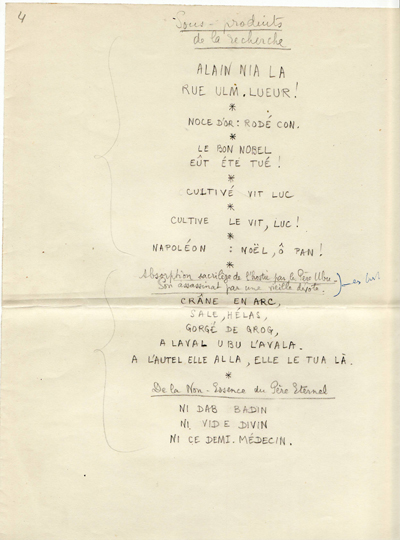 4
Sous-produits
de la recherche
ALAIN NIA LA
RUE ULM. LUEUR !
*
NOCE D'OR : RODÉ CON.
*
LE BON NOBEL
EÛT ÉTÉ TUÉ !
*
CULTIVÉ VIT LUC
*
CULTIVE LE VIT, LUC !
*
NAPOLÉON : NOËL, Ô PAN !
*
Absorption sacrilège de l'hostie par le Père Ubu.
Son assassinat par une vieille dévote.
CRÂNE EN ARC,
SALE, HÉLAS,
GORGÉ DE GROG,
A LAVAL UBU L'AVALA.
A L'AUTEL ELLE ALLA, ELLE LE TUA LÀ.
*
De la Non-Essence du Père Eternel
NI DAB BADIN
NI VIDE DIVIN
NI CE DEMI. MÉDECIN.